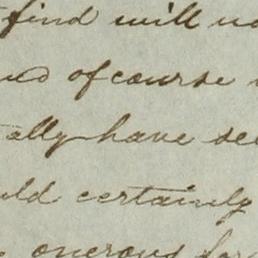 find will
of course
ally have see
ld certainly
onerous for